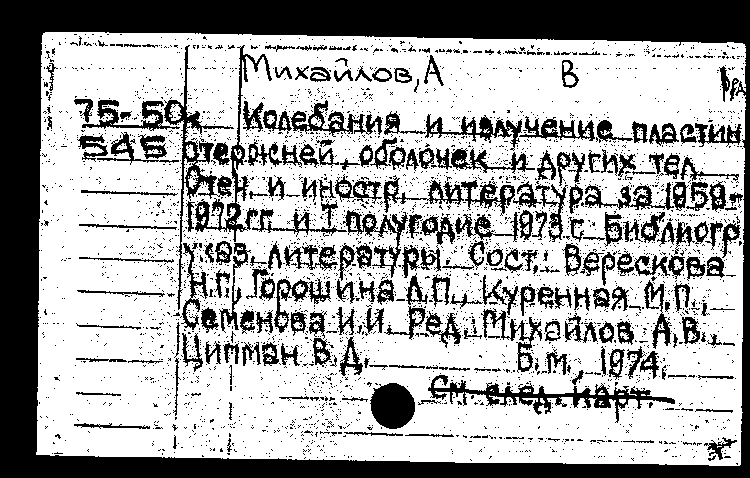 Михайлов, А В
75-50к Колебания и излучение пластин
545 стержней, оболочек и других тел.
Отеч. и иностр. литература за 1959-
1972гг. и I полугодие 1973г. Библиогр.
указ. литературы. Сост.: Верескова
Н.П., Горошина Л.П., Куренная М.П.,
Семенова И.И. Ред. Михайлов А.В.,
Ципман В.Д. Б.м., 1974.
См. след. карт.